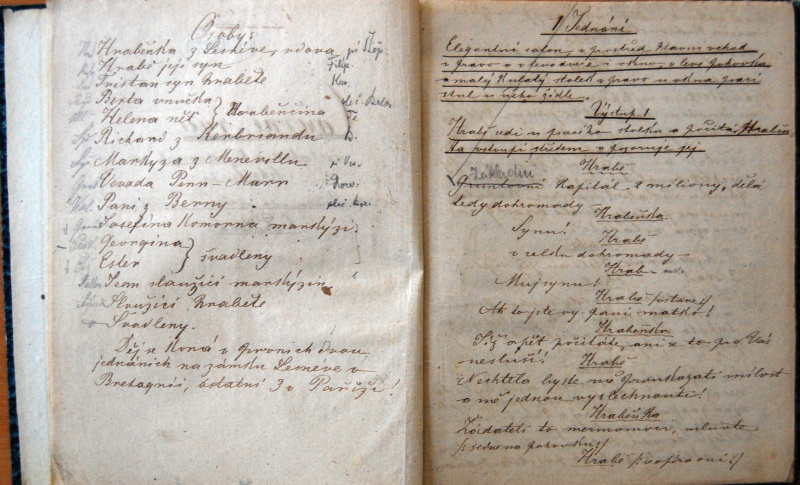 Osoby:
Hraběnka z Lesnéve, vdova
Hrabě její syn
Tristan syn hraběte
Berta vnučka } Hraběnčina
Helena neť
Richard z Kerbriandu
Markýza z Menévillu
Vevada Penn-Marr
Paní z Berny
Josefina komorná markýzi.
Georgina } švadleny
Ester
Jean sloužící markýzin
Sloužící hraběte
Švadleny.
Děj se koná v prvních dvou
jednáních na zámku Lesnéve v
Bretagnii, ostatní 3 v Paříži!
1/ Jednání
Elegantní salon, v prostřed hlavní vchod
v pravo a v levo dvéře – okno, v levo pohovka
a malý kulatý stolek v pravo u okna psací
stůl u něho židle.
Výstup 1
Hrabě sedí u psacího stolku a počítá, Hraběn-
ka vstoupí středem a pozoruje jej
Hrabě
Základní
Gruntovní kapitál 2 milliony, dělá
tedy dohromady –
Hraběnka
Synu!
Hrabě
v celku dohromady –
Hraběnka
Můj synu!
Hrabě povstane :/
Ah to jste vy, paní matko!
Hraběnka
Již opět počítáte, ani se to pro Vás
nesluší!
Hrabě
Nechtěla byste mě prokázati milost
a mě jednou vyslechnouti!
Hraběnka
Žádáte-li to, mluvte
/: sedne na pohovku :/
Hrabě